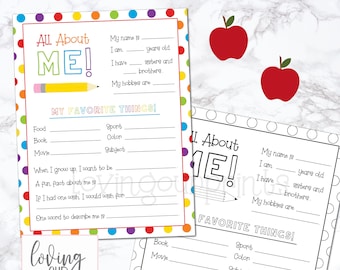 All About
ME!
My name is
I am years old.
I have sisters and
brothers.
My hobbies are
MY FAVORITE THINGS!
Food: Sport:
Book: Color:
Movie: Subject:
When I grow up, I want to be
A fun fact about me is
If I had one wish, I would wish for
One word to describe me is
All About
ME!
My name is
I am years old.
I have sisters and
brothers.
My hobbies are
FAVORITE THINGS!
Sport:
Color:
Subject:
loving
our